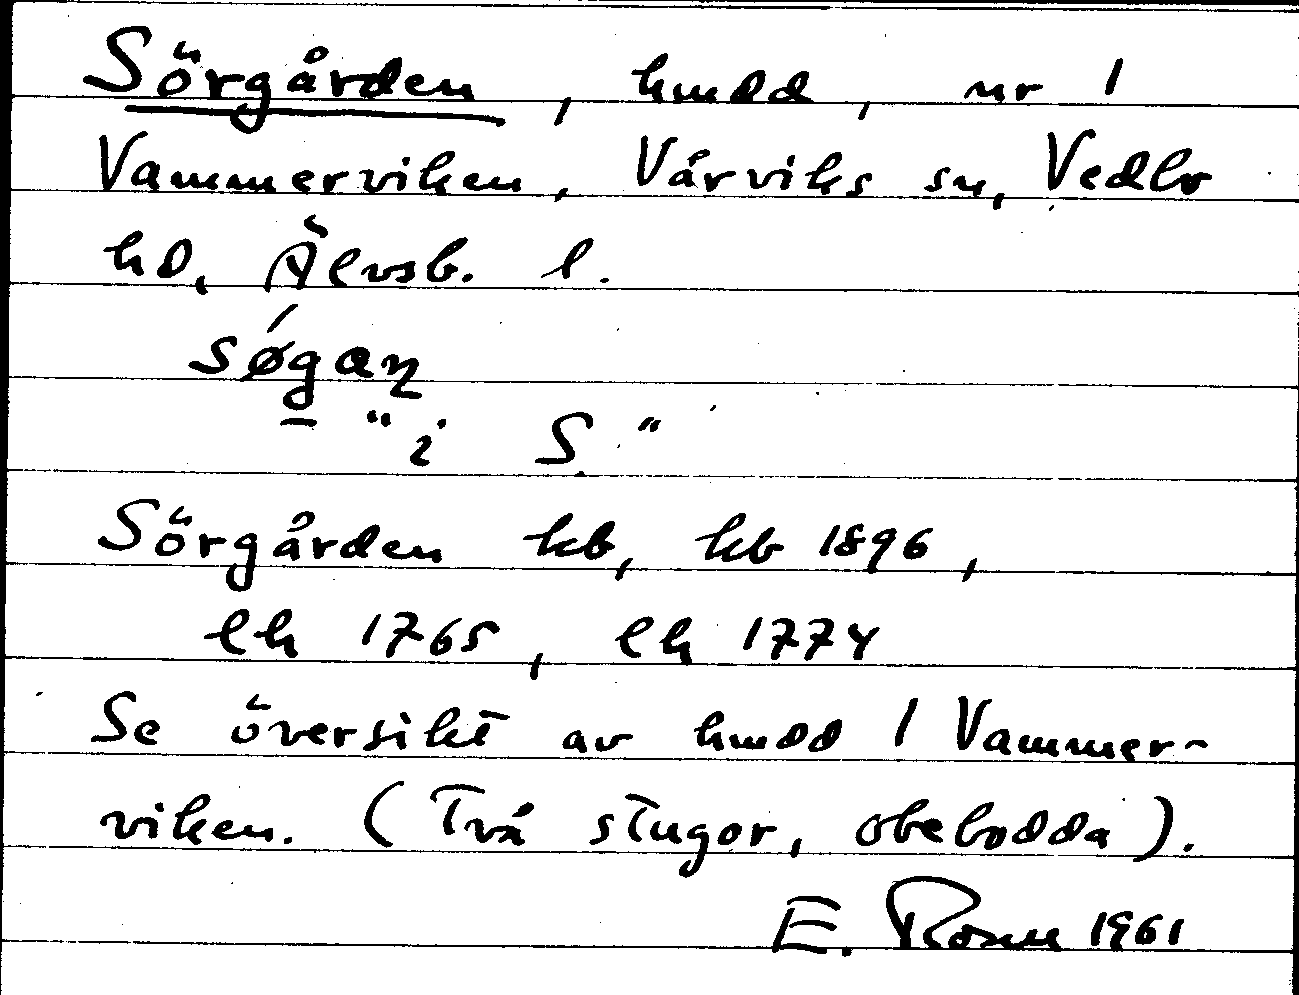 Sörgården, hmdd, nr 1
Vammerviken, Vårviks sn, Vedbo
hd, Älvsb. l.
søgan
"i S."
Sörgården kb, kb 1896,
lh 1765, lh 1774
Se översikt av hmdd 1 Vammer-
viken. (Två stugor, obebodda).
E. 1961